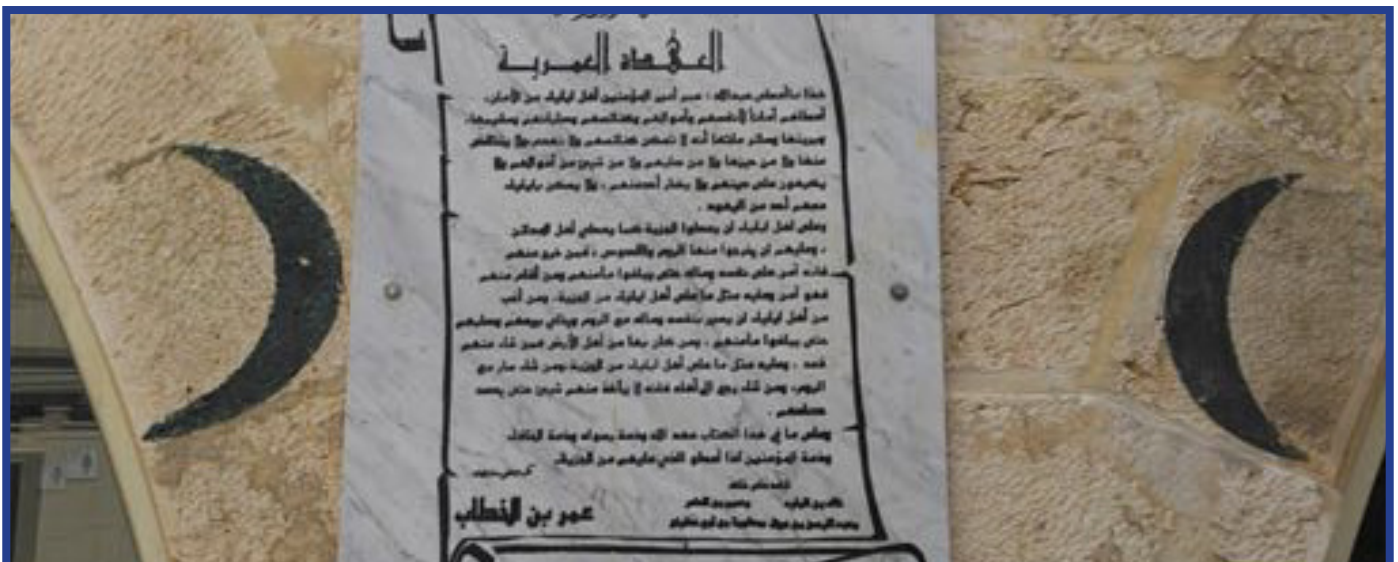 العهدة العمرية
هذا ما أعطى عبدالله ، عمر أمير المؤمنين أهل ايلياء من الأمان،
أعطاهم أماناً لأنفسهم وأموالهم وكنائسهم وصلبانهم وسقيمها،
وبريئها وسائر ملتها أنه لا تسكن كنائسهم ولا تهدم ولا ينتقض
منها ولا من حيزها ولا من صليبهم ولا من شيئ من أموالهم ولا
يكرهون على دينهم ولا يضار أحدمنهم ، ولا يسكن بايلياء
معهم أحد من اليهود .
وعلى اهل ايلياء ان يعطوا الجزية كما يعطي أهل المدائن
، وعليهم ان يخرجوا منها الروم واللصوص ، فمن خرج منهم
فانه آمن على نفسه وماله حتى يبلغوا مأمنهم ومن أقام منهم
فهو آمن وعليه مثل ما على أهل ايلياء من الجزية، ومن أحب
من أهل ايلياء ان يسير بنفسه وماله مع الروم ويخلي بيعهم وصلبهم
حتى يبلغوا مأمنهم ، ومن كان بها من أهل الأرض فمن شاء منهم
قعد ، وعليه مثل ما على أهل ايلياء من الجزية ومن شاء سار مع
الروم، ومن شاء رجع الى أهله فانه لا يأخذ منهم شيئ حتى يحصد
حصادهم .
وعلى ما في هذا الكتاب عهد الله وذمة رسوله وذمة الخلفاء
وذمة المؤمنين اذا أعطو الذي عليهم من الجزية.
شهد على ذلك
خالد بن الوليد وعمرو بن العاص
وعبد الرحمن بن عوف ومعاوية بن أبي سفيان
عمر بن الخطاب